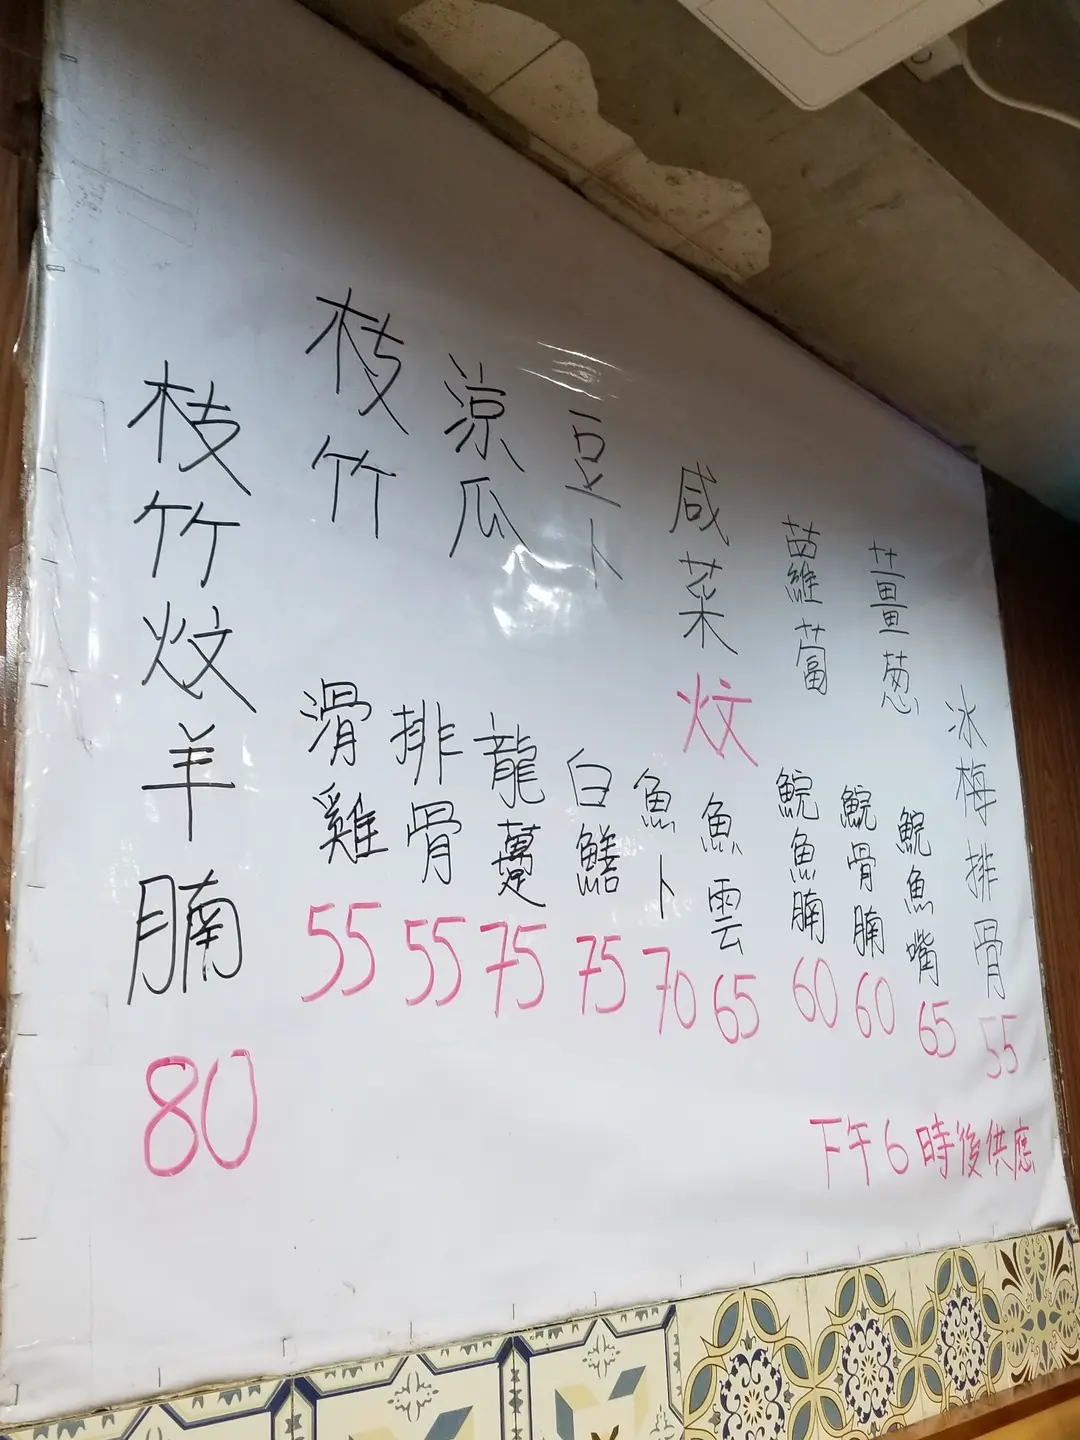 冰梅排骨
55
薑葱
蘿蔔
咸菜
豆卜
涼瓜
枝竹
炆
鯇魚嘴
65
鯇骨腩
60
鯇魚腩
60
魚雲
65
魚卜
70
白鱔
75
龍躉
75
排骨
55
滑雞
55
枝竹炆羊腩
80
下午6時後供應